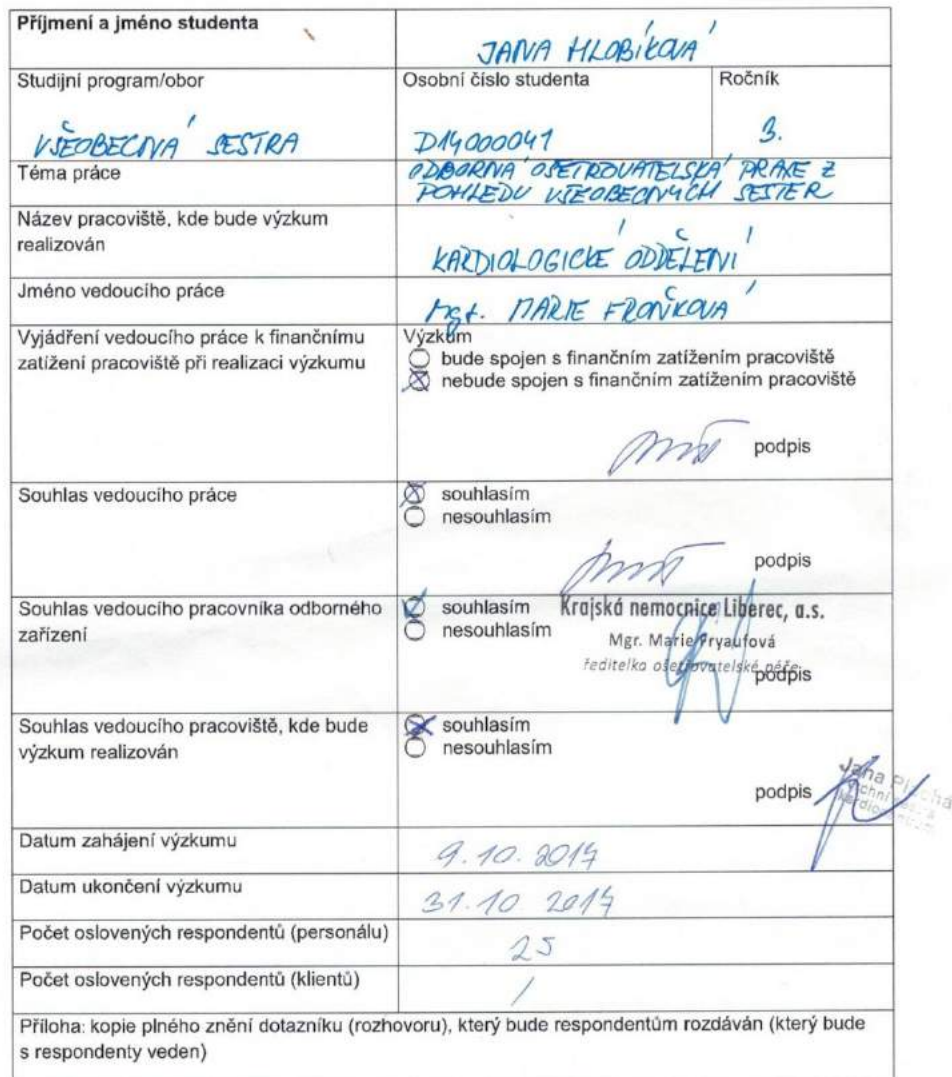 Příjmení a jméno studenta
JANA HLOBÍKOVÁ
Studijní program/obor
VŠEOBECNÁ SESTRA
Osobní číslo studenta
D14000041
Ročník
3.
Téma práce
ODBORNÁ OŠETŘOVATELSKÁ PRAXE Z
POHLEDU VŠEOBECNÝCH SESTER
Název pracoviště, kde bude výzkum
realizován
KARDIOLOGICKÉ ODDĚLENÍ
Jméno vedoucího práce
Mgr. MARIE FROŇKOVÁ
Vyjádření vedoucího práce k finančnímu
zatížení pracoviště při realizaci výzkumu
Výzkum
bude spojen s finančním zatížením pracoviště
nebude spojen s finančním zatížením pracoviště
podpis
Souhlas vedoucího práce
souhlasím
nesouhlasím
podpis
Souhlas vedoucího pracovníka odborného
zařízení
souhlasím
nesouhlasím
Krajská nemocnice Liberec, a.s.
Mgr. Marie Fryaufová
ředitelka ošetřovatelské péče
podpis
Souhlas vedoucího pracoviště, kde bude
výzkum realizován
souhlasím
nesouhlasím
podpis
Jana
Datum zahájení výzkumu
9.10.2017
Datum ukončení výzkumu
31.10 2017
Počet oslovených respondentů (personálu)
25
Počet oslovených respondentů (klientů)
/
Příloha: kopie plného znění dotazníku (rozhovoru), který bude respondentům rozdáván (který bude
s respondenty veden)